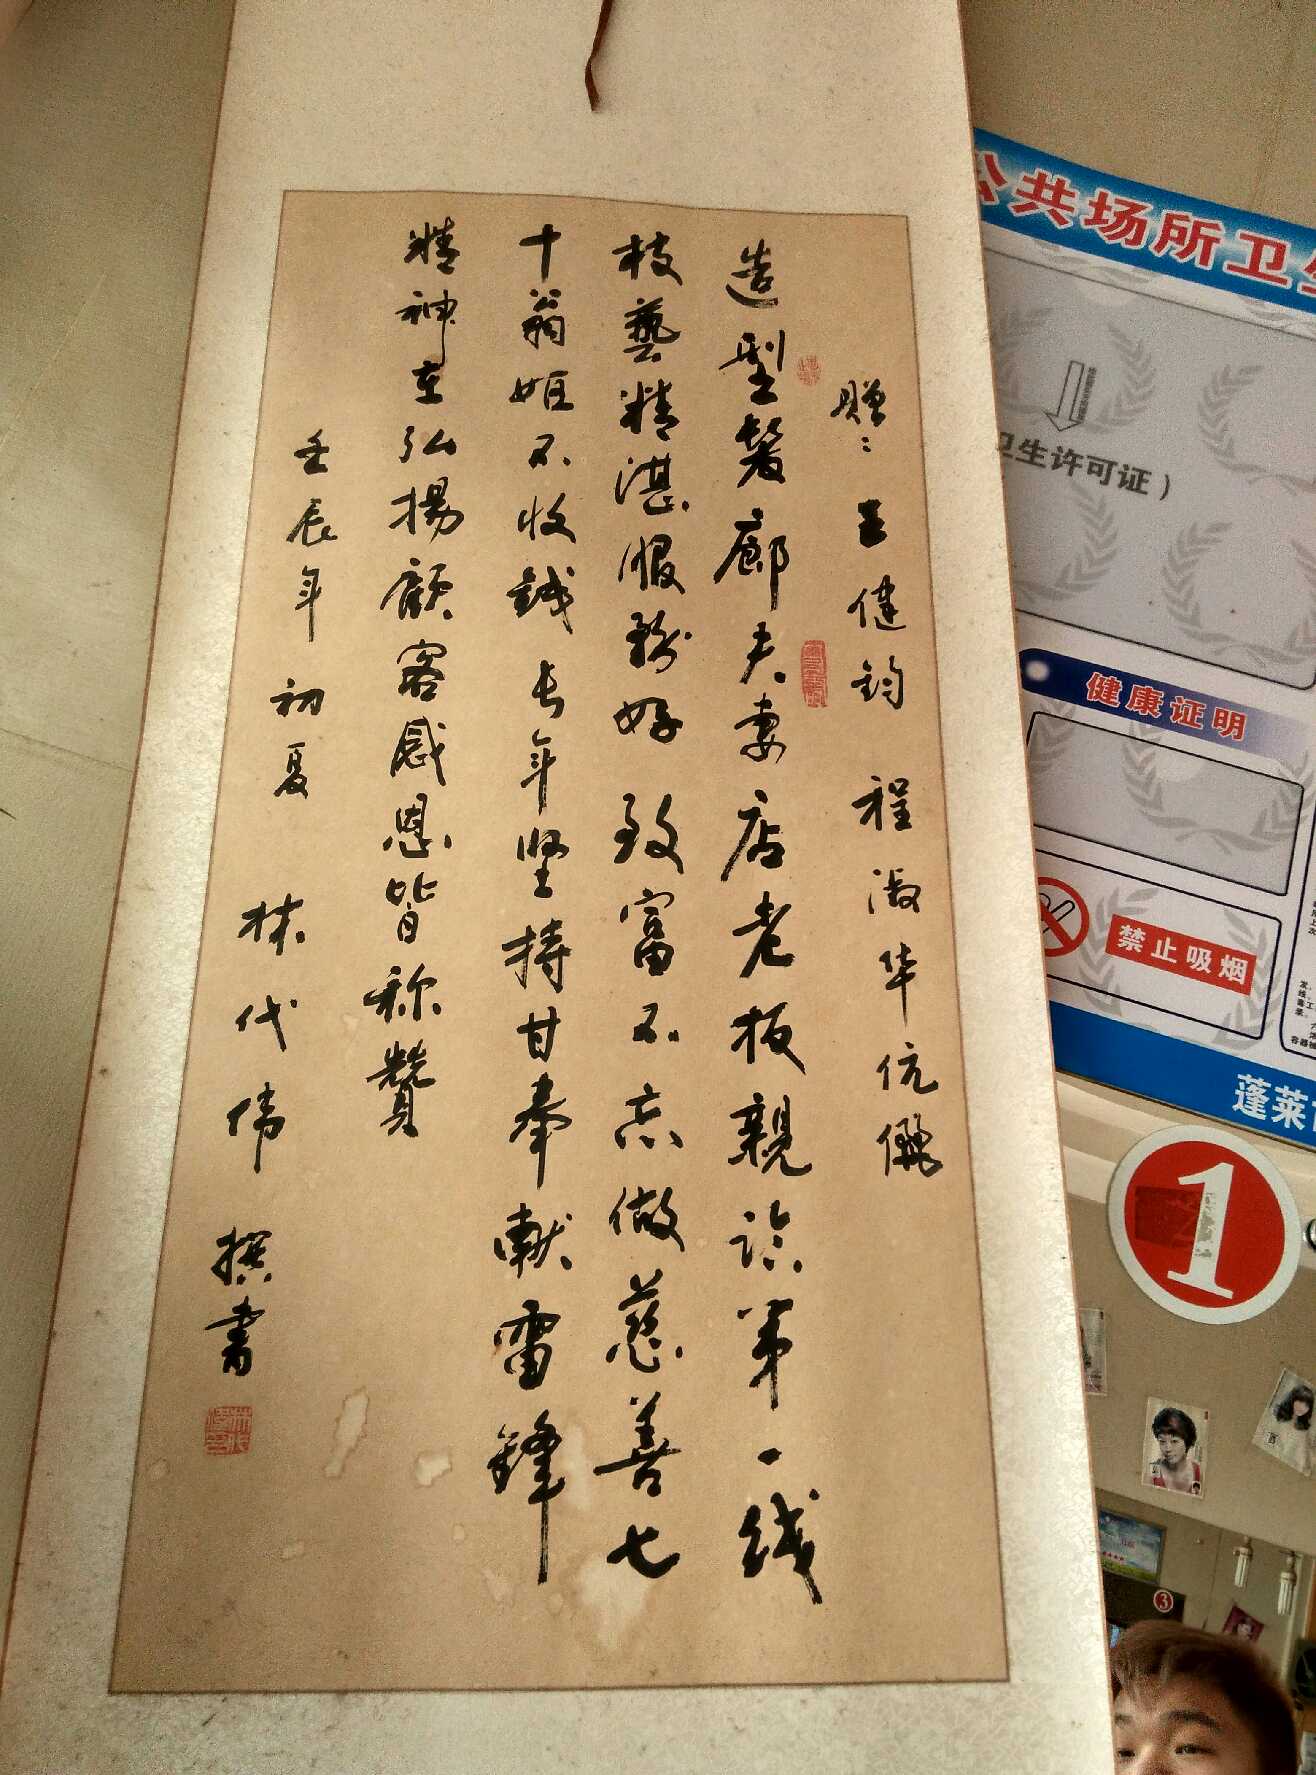 赠: 王健钧 程淑华伉俪
造型髮廊夫妻店老板親詣第一线
技藝精湛服務好致富不忘做慈善七
十翁姬不收錢长年坚持甘奉献雷锋
精神在弘揚顧客感恩皆称贊
壬辰年初夏 林代伟 撰書
公共场所卫生
卫生许可证）
健康证明
禁止吸烟
蓬莱
1
3